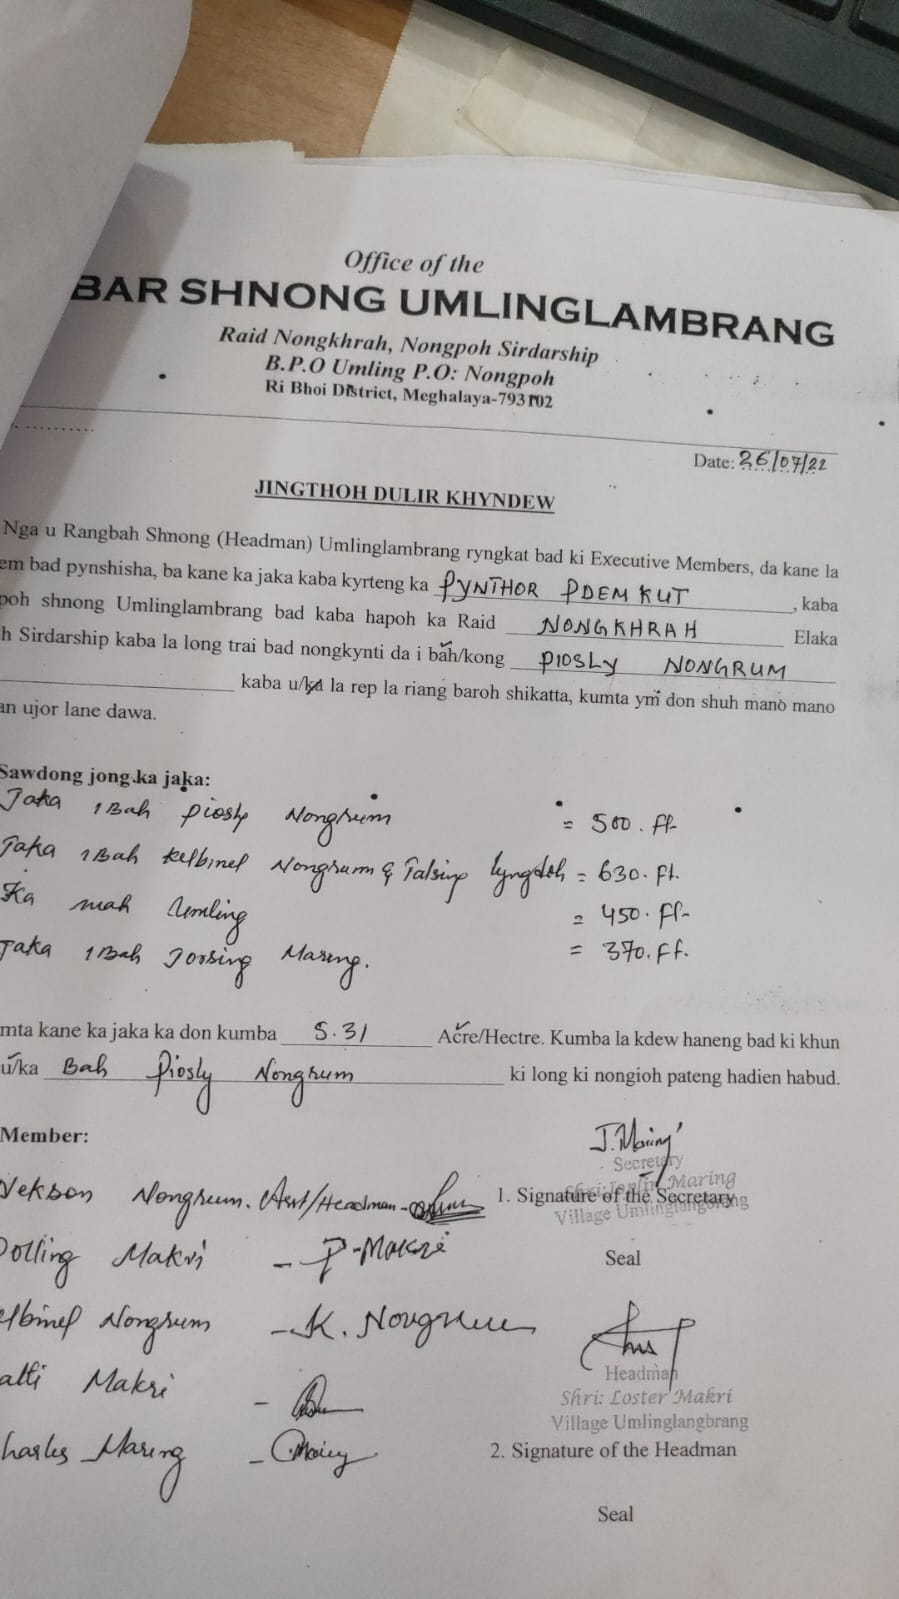 Office of the
BAR SHNONG UMLINGLAMBRANG
Raid Nongkhrah, Nongpoh Sirdarship
B.P.O Umling P.O: Nongpoh
Ri Bhoi District, Meghalaya-793102
Date: 26/07/22
JINGTHOH DULIR KHYNDEW
Nga u Rangbah Shnong (Headman) Umlinglambrang ryngkat bad ki Executive Members, da kane la
em bad pynshisha, ba kane ka jaka kaba kyrteng ka PYNTHOR PDEMKUT, kaba
poh shnong Umlinglambrang bad kaba hapoh ka Raid NONGKHRAH Elaka
h Sirdarship kaba la long trai bad nongkynti da i bah/kong PIOSLY NONGRUM
kaba u/ka la rep la riang baroh shikatta, kumta ym don shuh mano mano
an ujor lane dawa.
Sawdong jong ka jaka:
Jaka 1 Bah Piosly Nongrum = 500. ft
Jaka 1 Bah Kelbinel Nongrum & Talsing Lyngdoh = 630. ft.
Ka mah Umling = 450. ft
Jaka 1 Bah Jorsing Maring. = 370. ft.
mta kane ka jaka ka don kumba 5.31 Acre/Hectre. Kumba la kdew haneng bad ki khun
u/ka Bah Piosly Nongrum ki long ki nongioh pateng hadien habud.
Member:
J. Maring
Secretary
Maring
Village Umlinglangbrang
1. Signature of the Secretary
Seal
Nekson Nongrum. Asst/Headman -
Dolling Makri - P-Makri
elbinel Nongrum - K. Nongrum
alti Makri -
harles Maring - CMaring
Headman
Shri: Loster Makri
Village Umlinglangbrang
2. Signature of the Headman
Seal